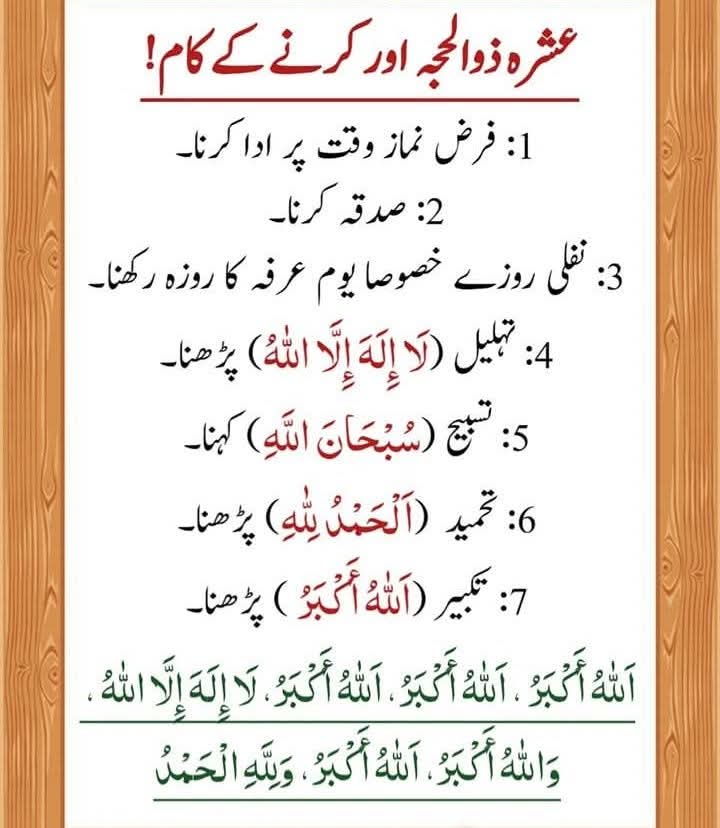 عشرہ ذوالحجہ اور کرنے کے کام!
1: فرض نماز وقت پر ادا کرنا۔
2: صدقہ کرنا۔
3: نفلی روزے خصوصا یوم عرفہ کا روزہ رکھنا۔
4: تہلیل (لَا إِلَهَ إِلَّا اللّٰهُ) پڑھنا۔
5: تسبیح (سُبْحَانَ اللَّهِ) کہنا۔
6: تحمید (اَلْحَمْدُ لِلّٰهِ) پڑھنا۔
7: تکبیر (اَللّٰهُ أَكْبَرُ) پڑھنا۔
اَللّٰهُ أَكْبَرُ، اَللّٰهُ أَكْبَرُ، اَللّٰهُ أَكْبَرُ، لَا إِلَهَ إِلَّا اللّٰهُ،
وَاللّٰهُ أَكْبَرُ، اَللّٰهُ أَكْبَرُ، وَلِلَّهِ الْحَمْدُ